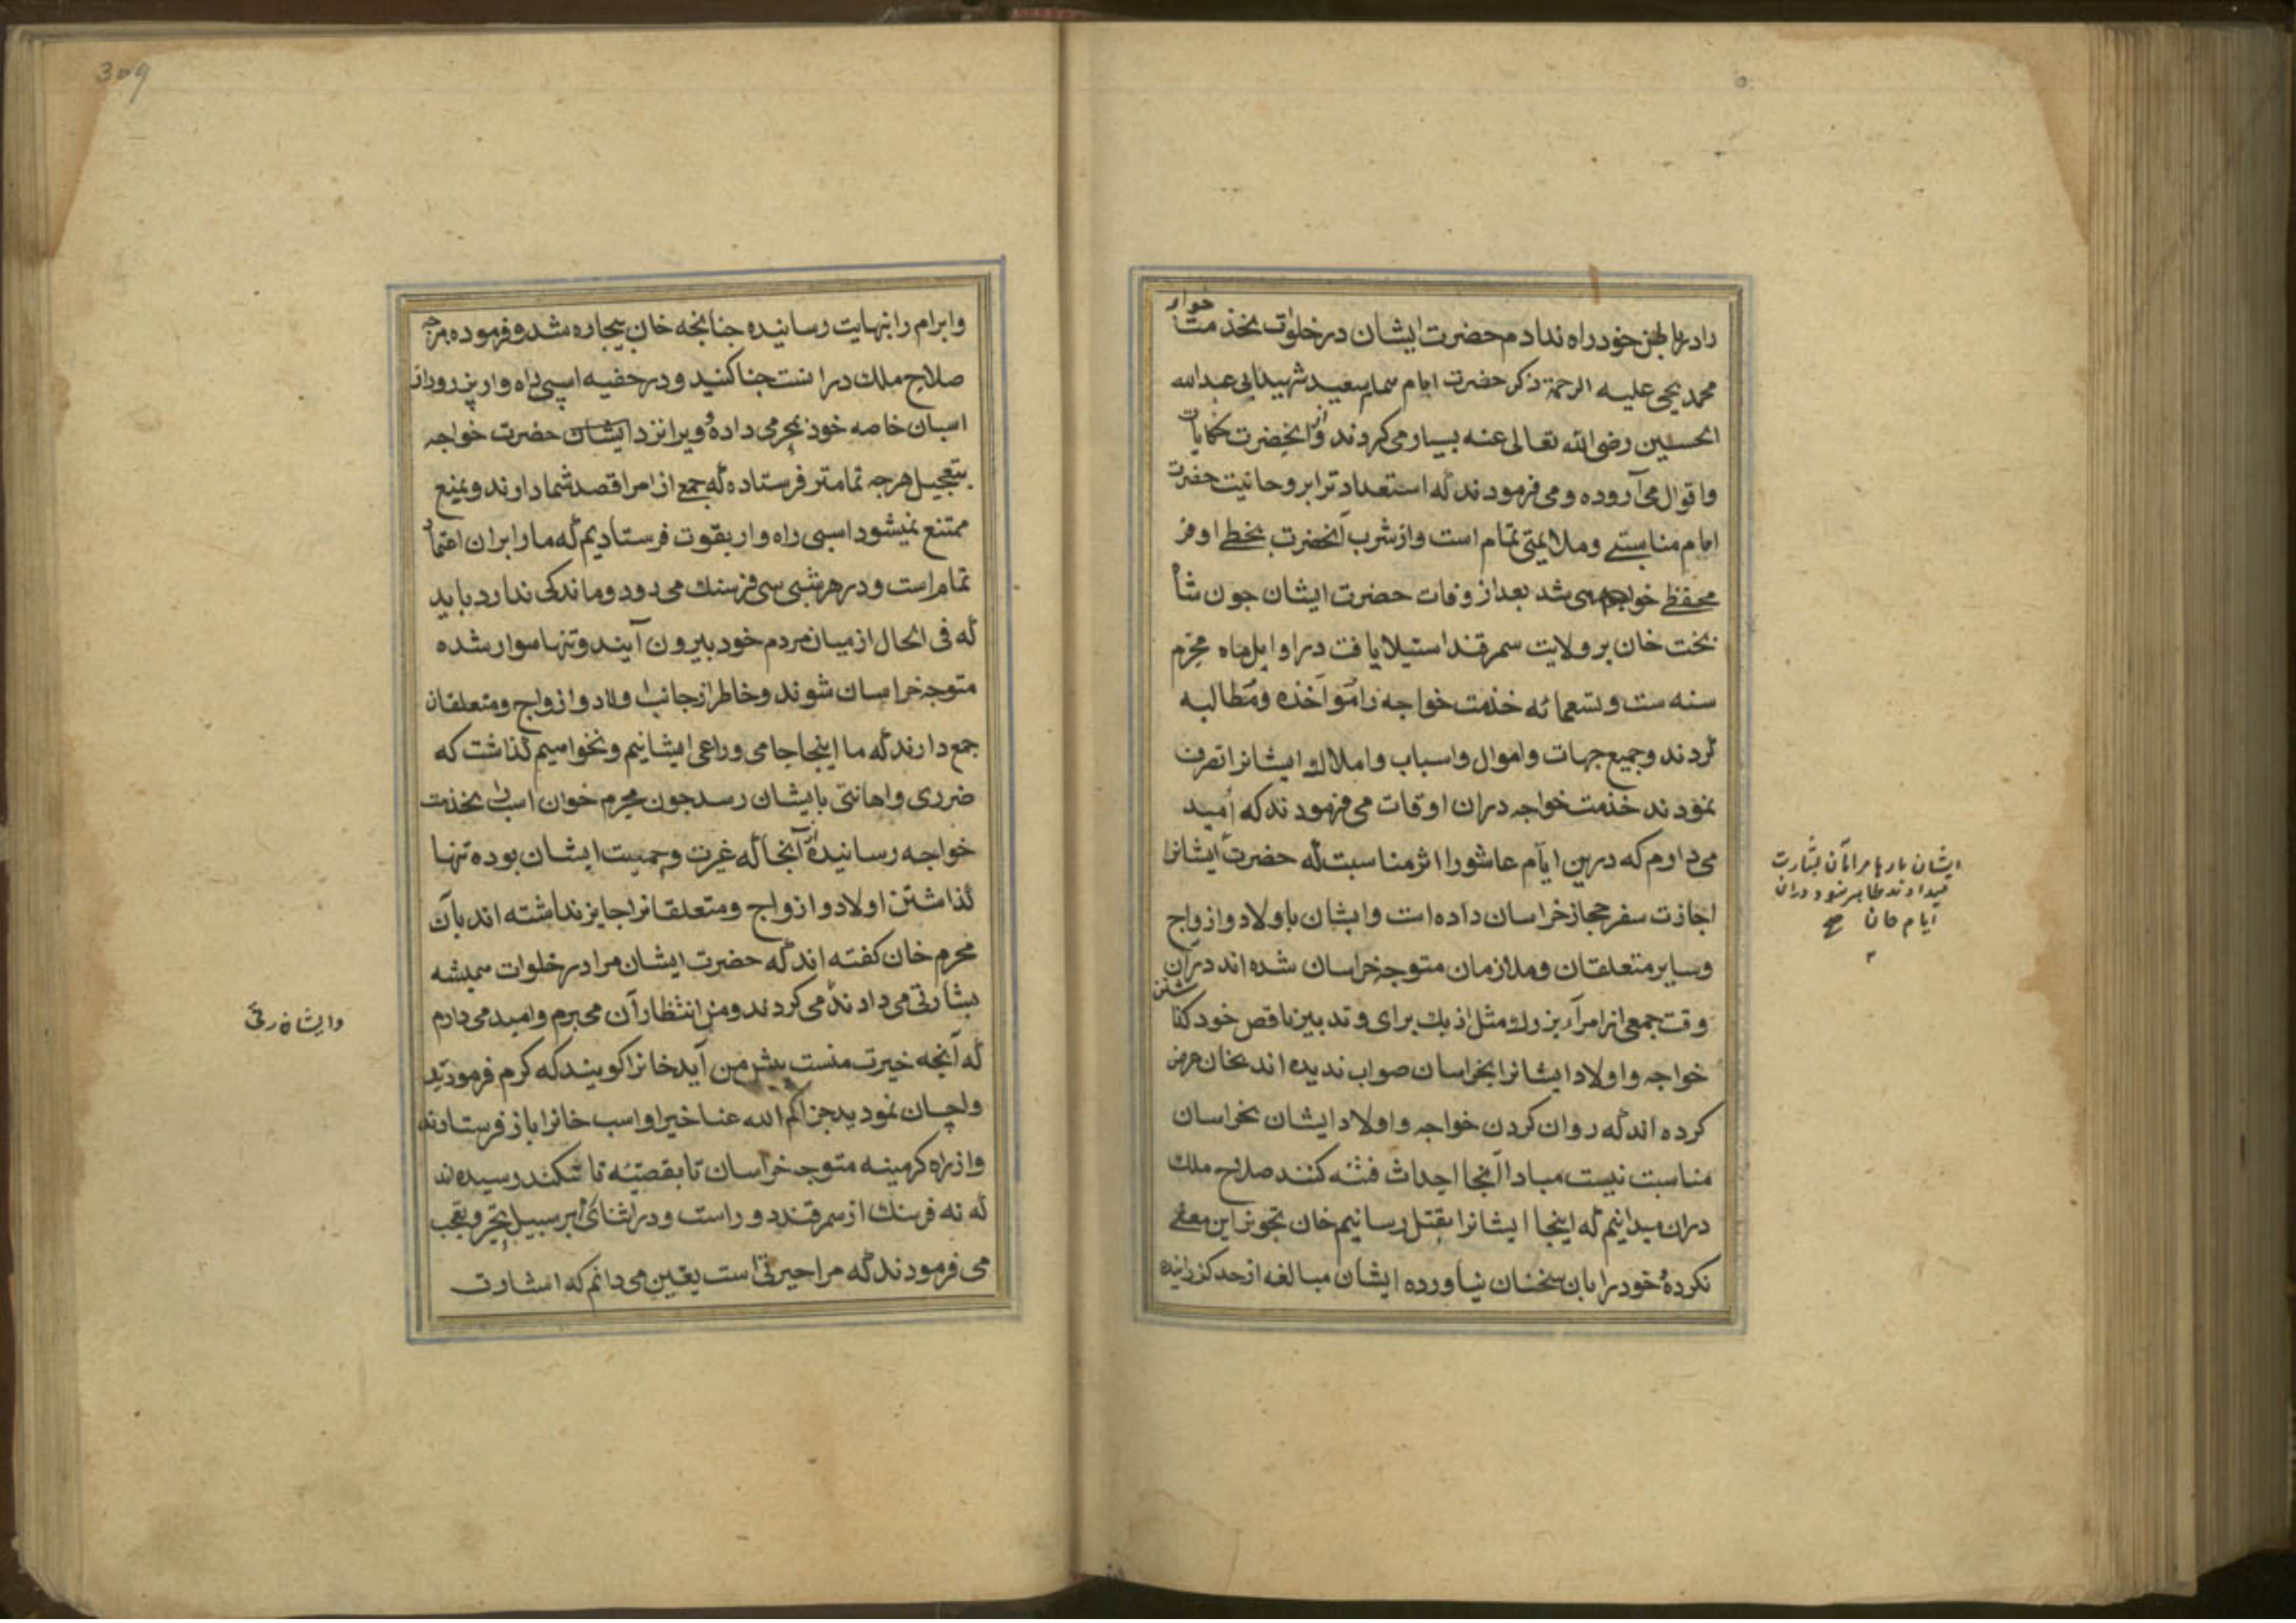 را در باطن خود راه ندادم حضرت ایشان در خلوات بخذمت خواجه
محمد یحیی علیه الرحمة ذکر حضرت امام سعید شهید ابی عبدالله
الحسین رضی الله تعالی عنه بسیار می کردند و از آنحضرت حکایات
و اقوال می آورده و می فرمودند که استعداد ترا بروحانیت حضرت
امام مناسبتی و ملایمتی تمام است و از شرب آنحضرت بحظی اوفر
محتفظ خواهی شد بعد از وفات حضرت ایشان جون شاه
بخت خان بر ولایت سمرقند استیلا یافت در اوایل ماه محرم
سنه ست و تسعمائه خذمت خواجه را مواخذه و مطالبه
کردند و جمیع جهات و اموال و اسباب و املاک ایشانرا تصرف
نمودند خذمت خواجه دران اوقات می فرمودند که امید
می دارم که درین ایام عاشورا اثر مناسبت که حضرت ایشانرا
اجازت سفر حجاز خراسان داده است و ایشان با اولاد و ازواج
و سایر متعلقان و ملازمان متوجه خراسان شده اند در آن
وقت جمعی از امرآء بزرک مثل ازبک برای و تدبیر ناقص خود کذاشتن
خواجه و اولاد ایشانرا بخراسان صواب ندیده اند بخان عرض
کرده اند که روان کردن خواجه و اولاد ایشان بخراسان
مناسبت نیست مبادا آنجا احداث فتنه کنند صلاح ملک
دران میدانیم که اینجا ایشانرا بقتل رسانیم خان تجویز این معنی
نکرده و خود را بان سخنان نیاورده ایشان مبالغه از حد کذرانیده
ایشان بارها مرا بآن بشارت
میدادند ظاهر شود دران
ایام خان صح
309
و ابرام را بنهایت رسانیده جنانجه خان بیجاره شد و فرموده هر جه
صلاح ملک در انست جنا کنید و در خفیه اسپی راه وار پزرو از
اسبان خاصه خود بمحرمی داده و ویرا نزد ایشان حضرت خواجه
بتعجیل هر جه تمامتر فرستاده که جمع از امرا قصد شما دارند و بمنع
ممتنع نمیشود اسپی راه وار بقوت فرستادیم که ما را بران اعتماد
تمام است و در هر شبی سی فرسنک می دود و ماندکی ندارد باید
که فی الحال از میان مردم خود بیرون آیند و تنها سوار شده
متوجه خراسان شوند و خاطر از جانب اولاد و ازواج و متعلقان
جمع دارند که ما اینجا حامی و راعی ایشانیم و نخواهیم کذاشت که
ضرری و اهانتی بایشان رسد جون محرم خوان اسب را بخذمت
خواجه رسانیده از آنجا که غیرت و حمیت ایشان بوده تنها
کذاشتن اولاد و ازواج و متعلقانرا جایز نداشته اند بآن
محرم خان کفته اند که حضرت ایشان مرا در خلوات همیشه
بشارتی می دادند می کردند و من انتظار آن می برم و امید می دارم
که آنجه خیرت منست پیش من آید خانرا کویند که کرم فرمودید
و احسان نمودید جزاکم الله عنا خیرا و اسب خانرا باز فرستادند
و از راه کرمینه متوجه خراسان تا بقصبه تا تنکند رسیده اند
که نه فرسنک از سمرقند دور است و در اثنای بر سبیل تحیر و تعجب
می فرمودند که مرا حیرتی است یقین می دانم که اشارت